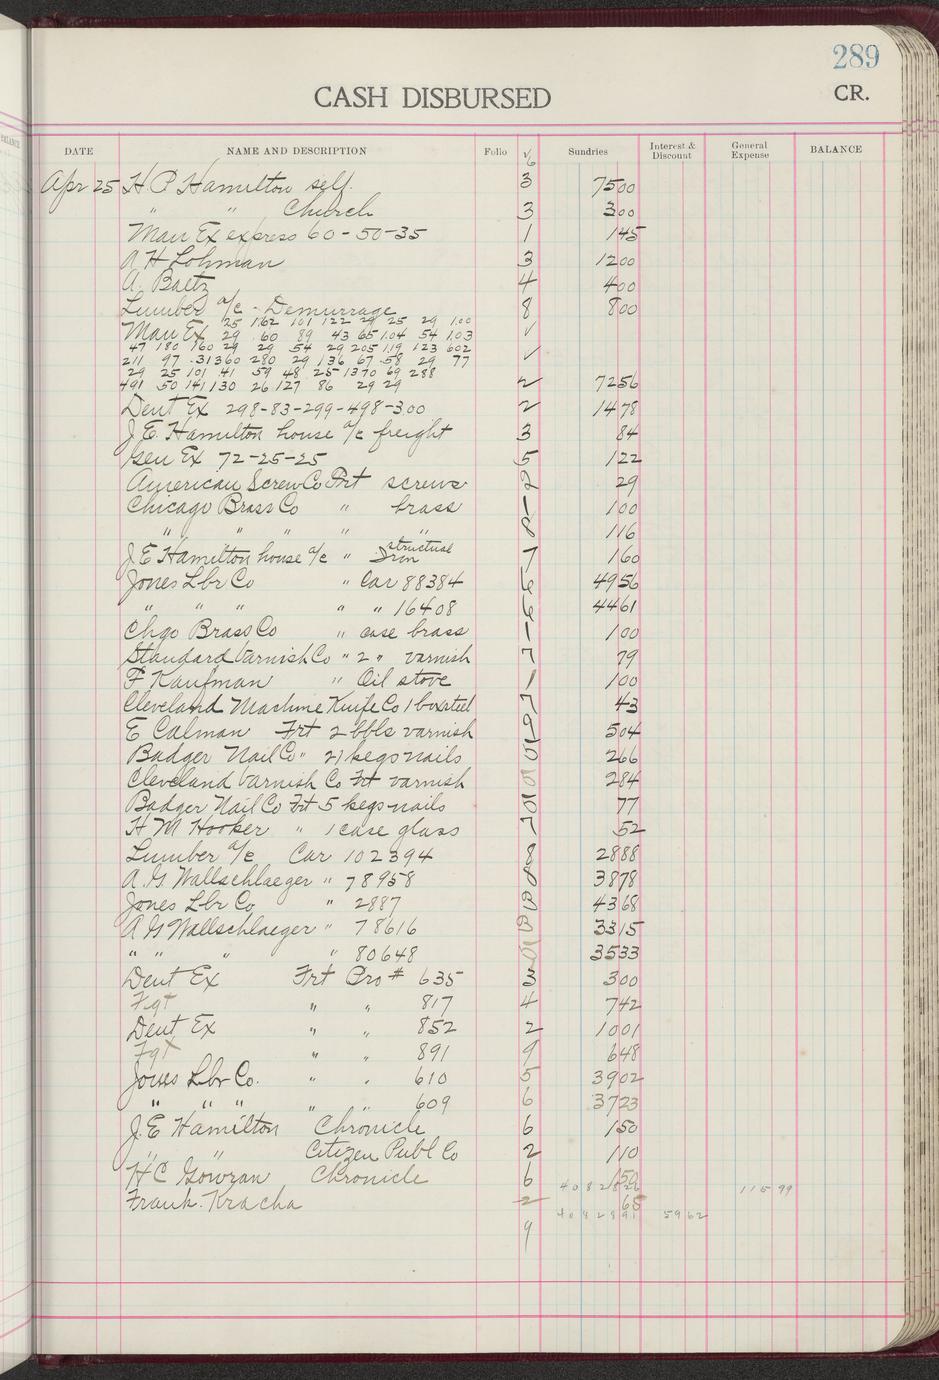 289
CASH DISBURSED
CR.
BALANCE
DATE NAME AND DESCRIPTION Folio V6 Sundries Interest & Discount General Expense BALANCE
Apr 25 H. P. Hamilton self. 3 7500
" " Church 3 300
Man Ex express 60-50-35 1 145
A H Lohman 3 1200
A. Baltz 4 400
Lumber a/c - Demurrage 8 800
Man Ex 25 1.62 101 122 29 25 29 1.00
29 .60 89 43 65 1.04 54 1.03 ✓
47 180 160 29 29 54 29 205 1.19 123 602
211 97 .31 360 280 29 136 67 .58 29 77 ✓
29 25 101 41 59 48 25 1370 69 288
491 50 141 130 26 127 86 29 29 2 7256
Dent Ex 298-83-299-498-300 2 1478
J. E. Hamilton house a/c freight 3 84
Gen Ex 72-25-25 5 122
American Screw Co Frt screws 29
Chicago Brass Co " brass 100
" " " " " 116
J E Hamilton house a/c " Structural Iron 160
Jones Lbr Co " Car 88384 4956
" " " " " 16408 4461
Chgo Brass Co " case brass 100
Standard Varnish Co " 2 " varnish 79
F Kaufman " Oil stove 100
Cleveland Machine Knife Co 1 box steel 43
E Calman Frt 2 bbls varnish 504
Badger Nail Co " 21 kegs nails 266
Cleveland Varnish Co Frt varnish 284
Badger Nail Co Frt 5 kegs nails 77
H M Hooker " 1 case glass 52
Lumber a/c Car 102394 8 2888
A. G. Wallschlaeger " 78958 8 3878
Jones Lbr Co " 2887 4368
A G Wallschlaeger " 78616 3315
" " " " 80648 3533
Dent Ex Frt Pro # 635 3 300
Fgt " " 817 4 742
Dent Ex " " 852 2 1001
Fgt " " 891 9 648
Jones Lbr Co. " " 610 5 3902
" " " " " 609 6 3723
J. E Hamilton Chronicle 6 150
" " Citizen Publ Co 2 110
H C Gowran Chronicle 6 150
115 99
Frank Kracha 2 65
4082891 5962
9